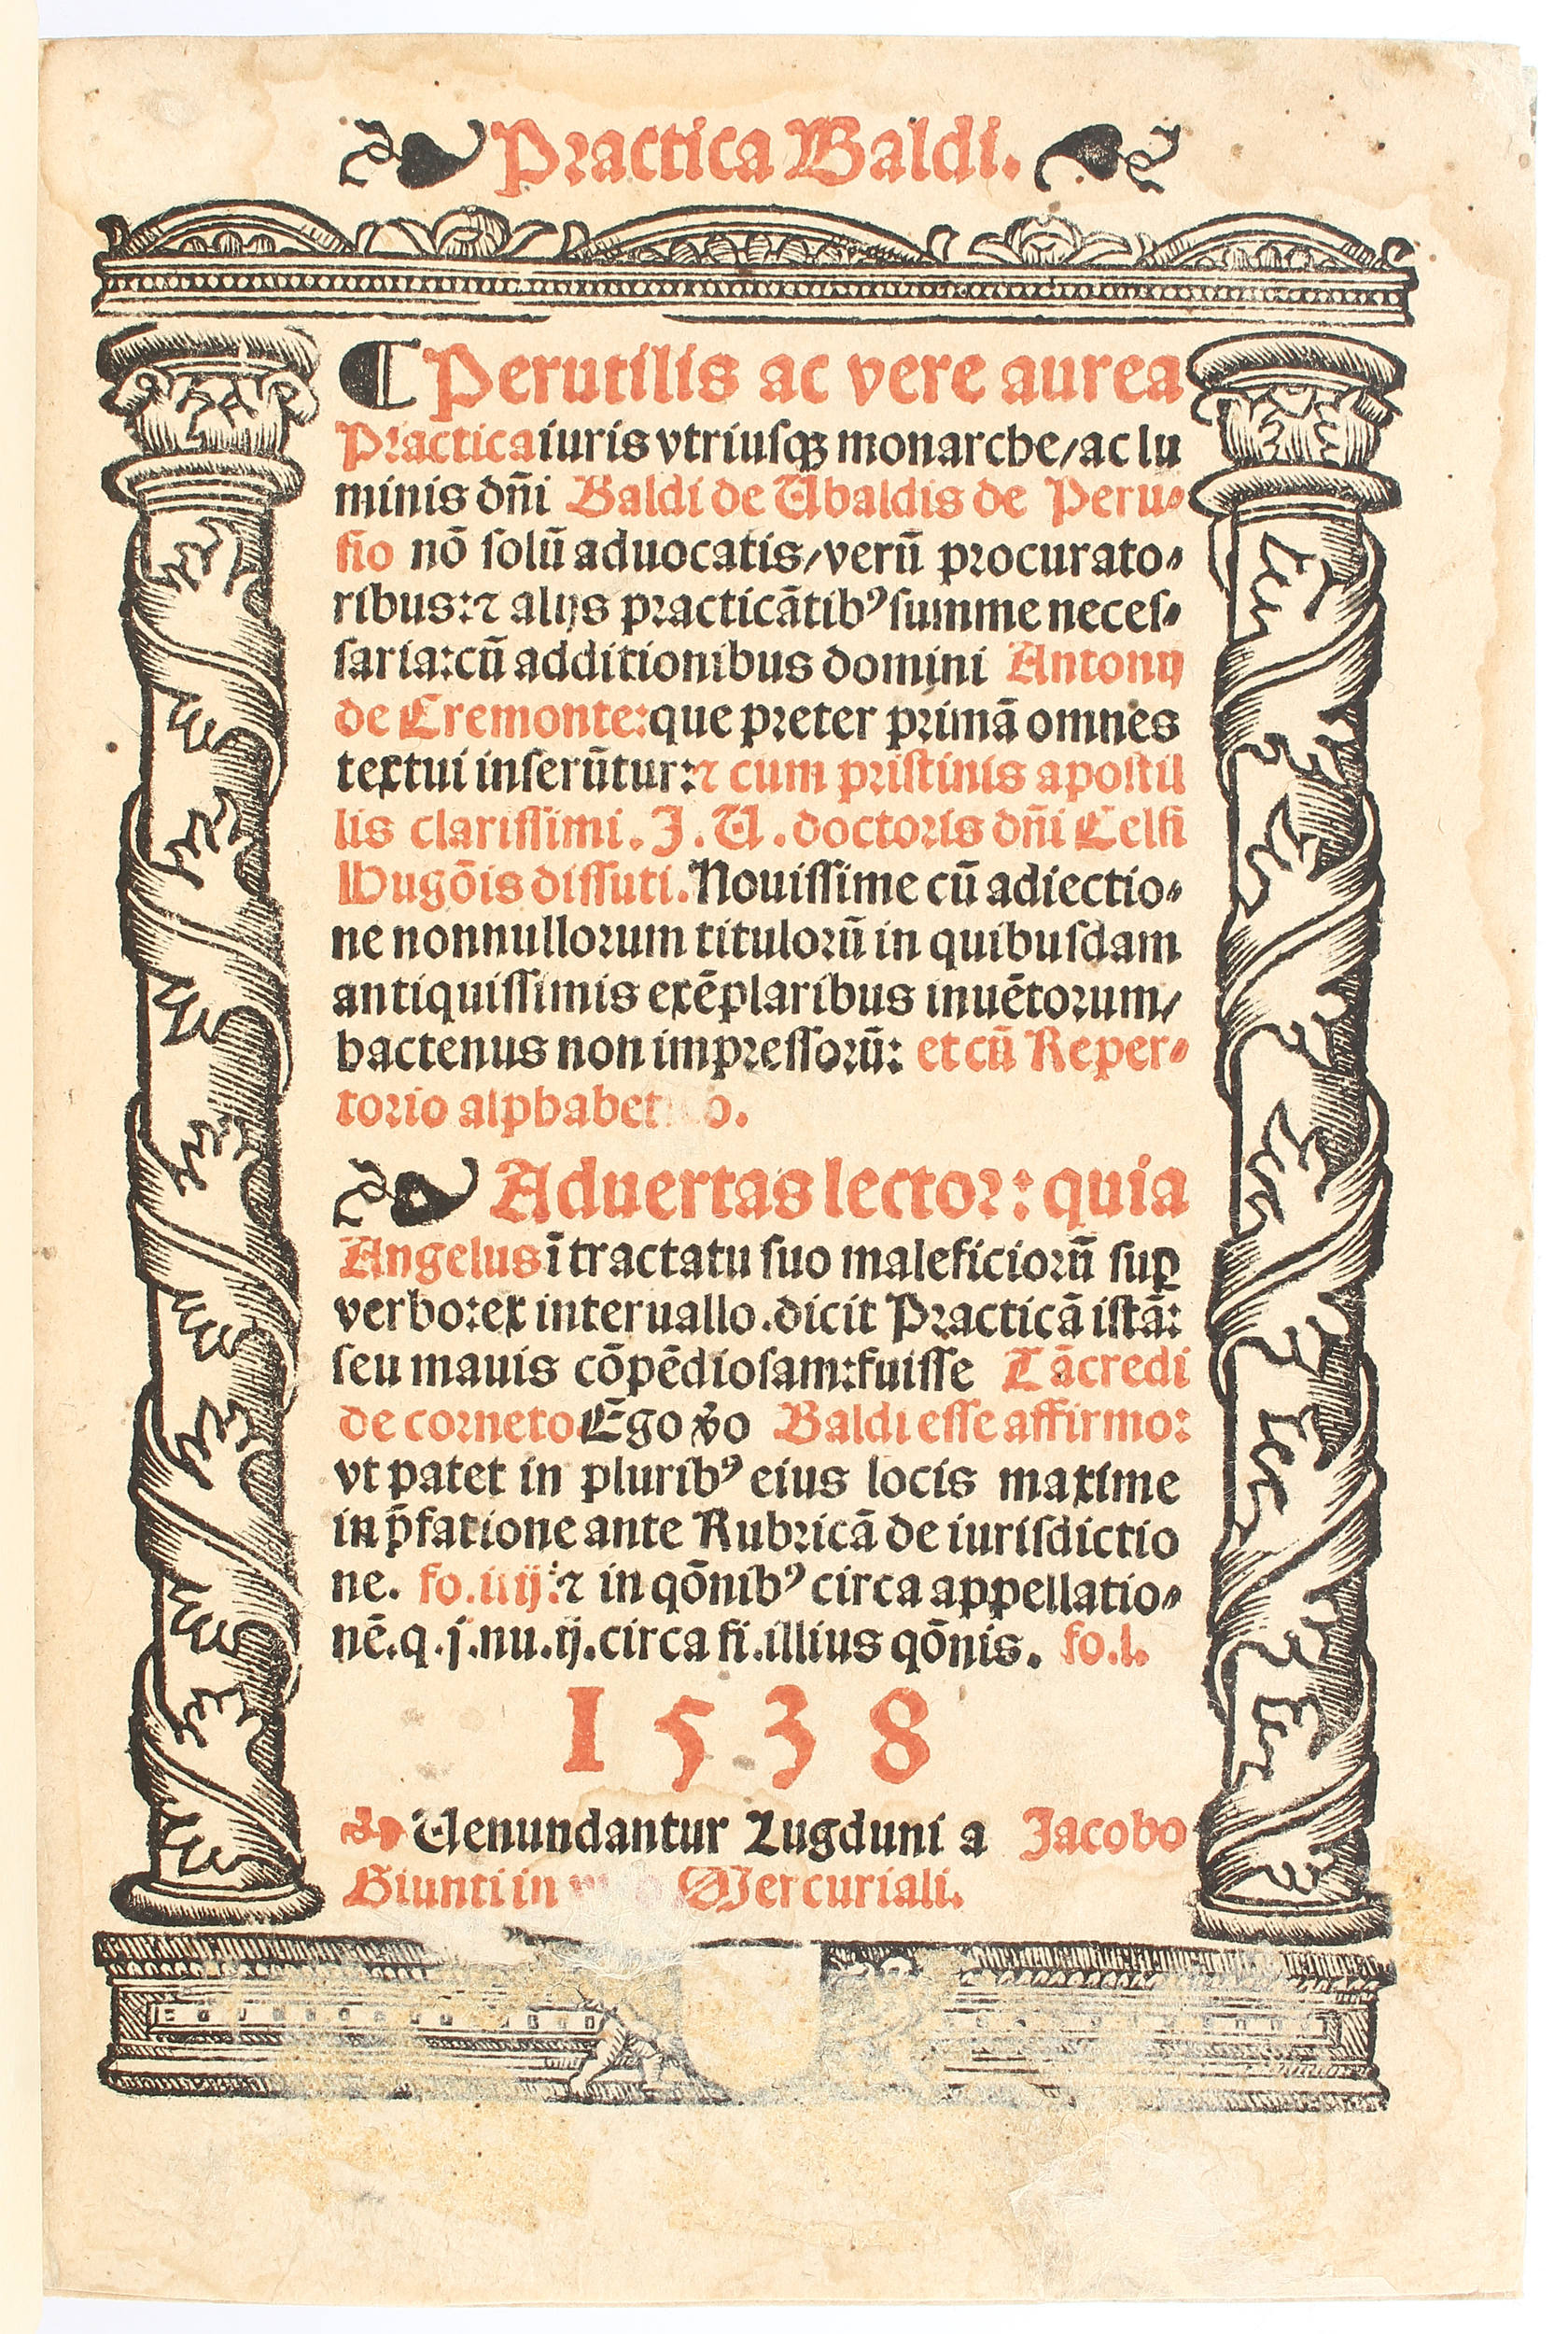 Practica Baldi.
¶ Perutilis ac vere aurea
Practica iuris vtriusqꝫ monarche/ac lu
minis dñi Baldi de Ubaldis de Peru⸗
sio nō solū aduocatis/verū procurato⸗
ribus:⁊ alijs practicātibꝰ summe neces⸗
saria:cū additionibus domini Antonij
de Cremonte:que preter primā omnes
textui inserūtur:⁊ cum pristinis apostil
lis clarissimi. J. U. doctoris dñi Celsi
Hugōis dissuti. Nouissime cū adiectio⸗
ne nonnullorum titulorū in quibusdam
antiquissimis exēplaribus inuētorum/
hactenus non impressorū: et cū Reper⸗
torio
Aduertas lector: quia
Angelus ī tractatu suo maleficiorū suꝑ
verbo:ex interuallo.dicit Practicā istā:
seu mauis cōpēdiosam:fuisse Tācredi
de corneto Ego v̄o Baldi esse affirmo:
vt patet in pluribꝰ eius locis maxime
in p̄fatione ante Rubricā de iurisdictio
ne. fo.iiij.⁊ in qōnibꝰ circa appellatio⸗
nē.q.j.nu.ij.circa fi.illius qōnis. fo.l.
1538
Uenundantur Lugduni a Jacobo
Giunti in Mercuriali.